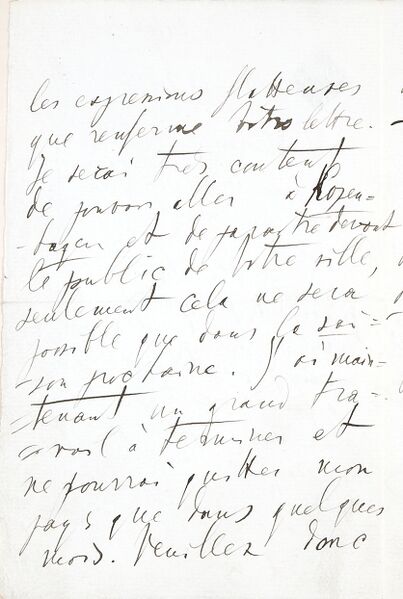 les expressions flatteuses
que renferme votre lettre.
Je serai très content
de pouvoir aller à Kopen-
-hagen et de paraitre devant
le public de votre ville,
seulement cela ne sera
possible que dans la sai-
-son prochaine. J'ai main-
-tenant un grand tra-
-vail à terminer et
ne pourrai quitter mon
pays que dans quelques
mois. Veuillez donc